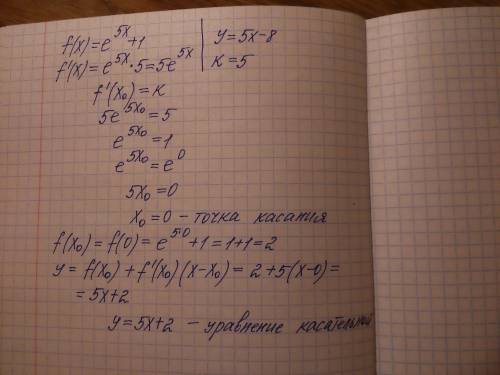 f(x) = e^{5x} + 1 | y = 5x - 8
f'(x) = e^{5x} · 5 = 5e^{5x} | K = 5
f'(x₀) = K
5e^{5x₀} = 5
e^{5x₀} = 1
e^{5x₀} = e^0
5x₀ = 0
x₀ = 0 - точка касания
f(x₀) = f(0) = e^{5·0} + 1 = 1 + 1 = 2
y = f(x₀) + f'(x₀)(x - x₀) = 2 + 5(x - 0) =
= 5x + 2
y = 5x + 2 - уравнение касательной